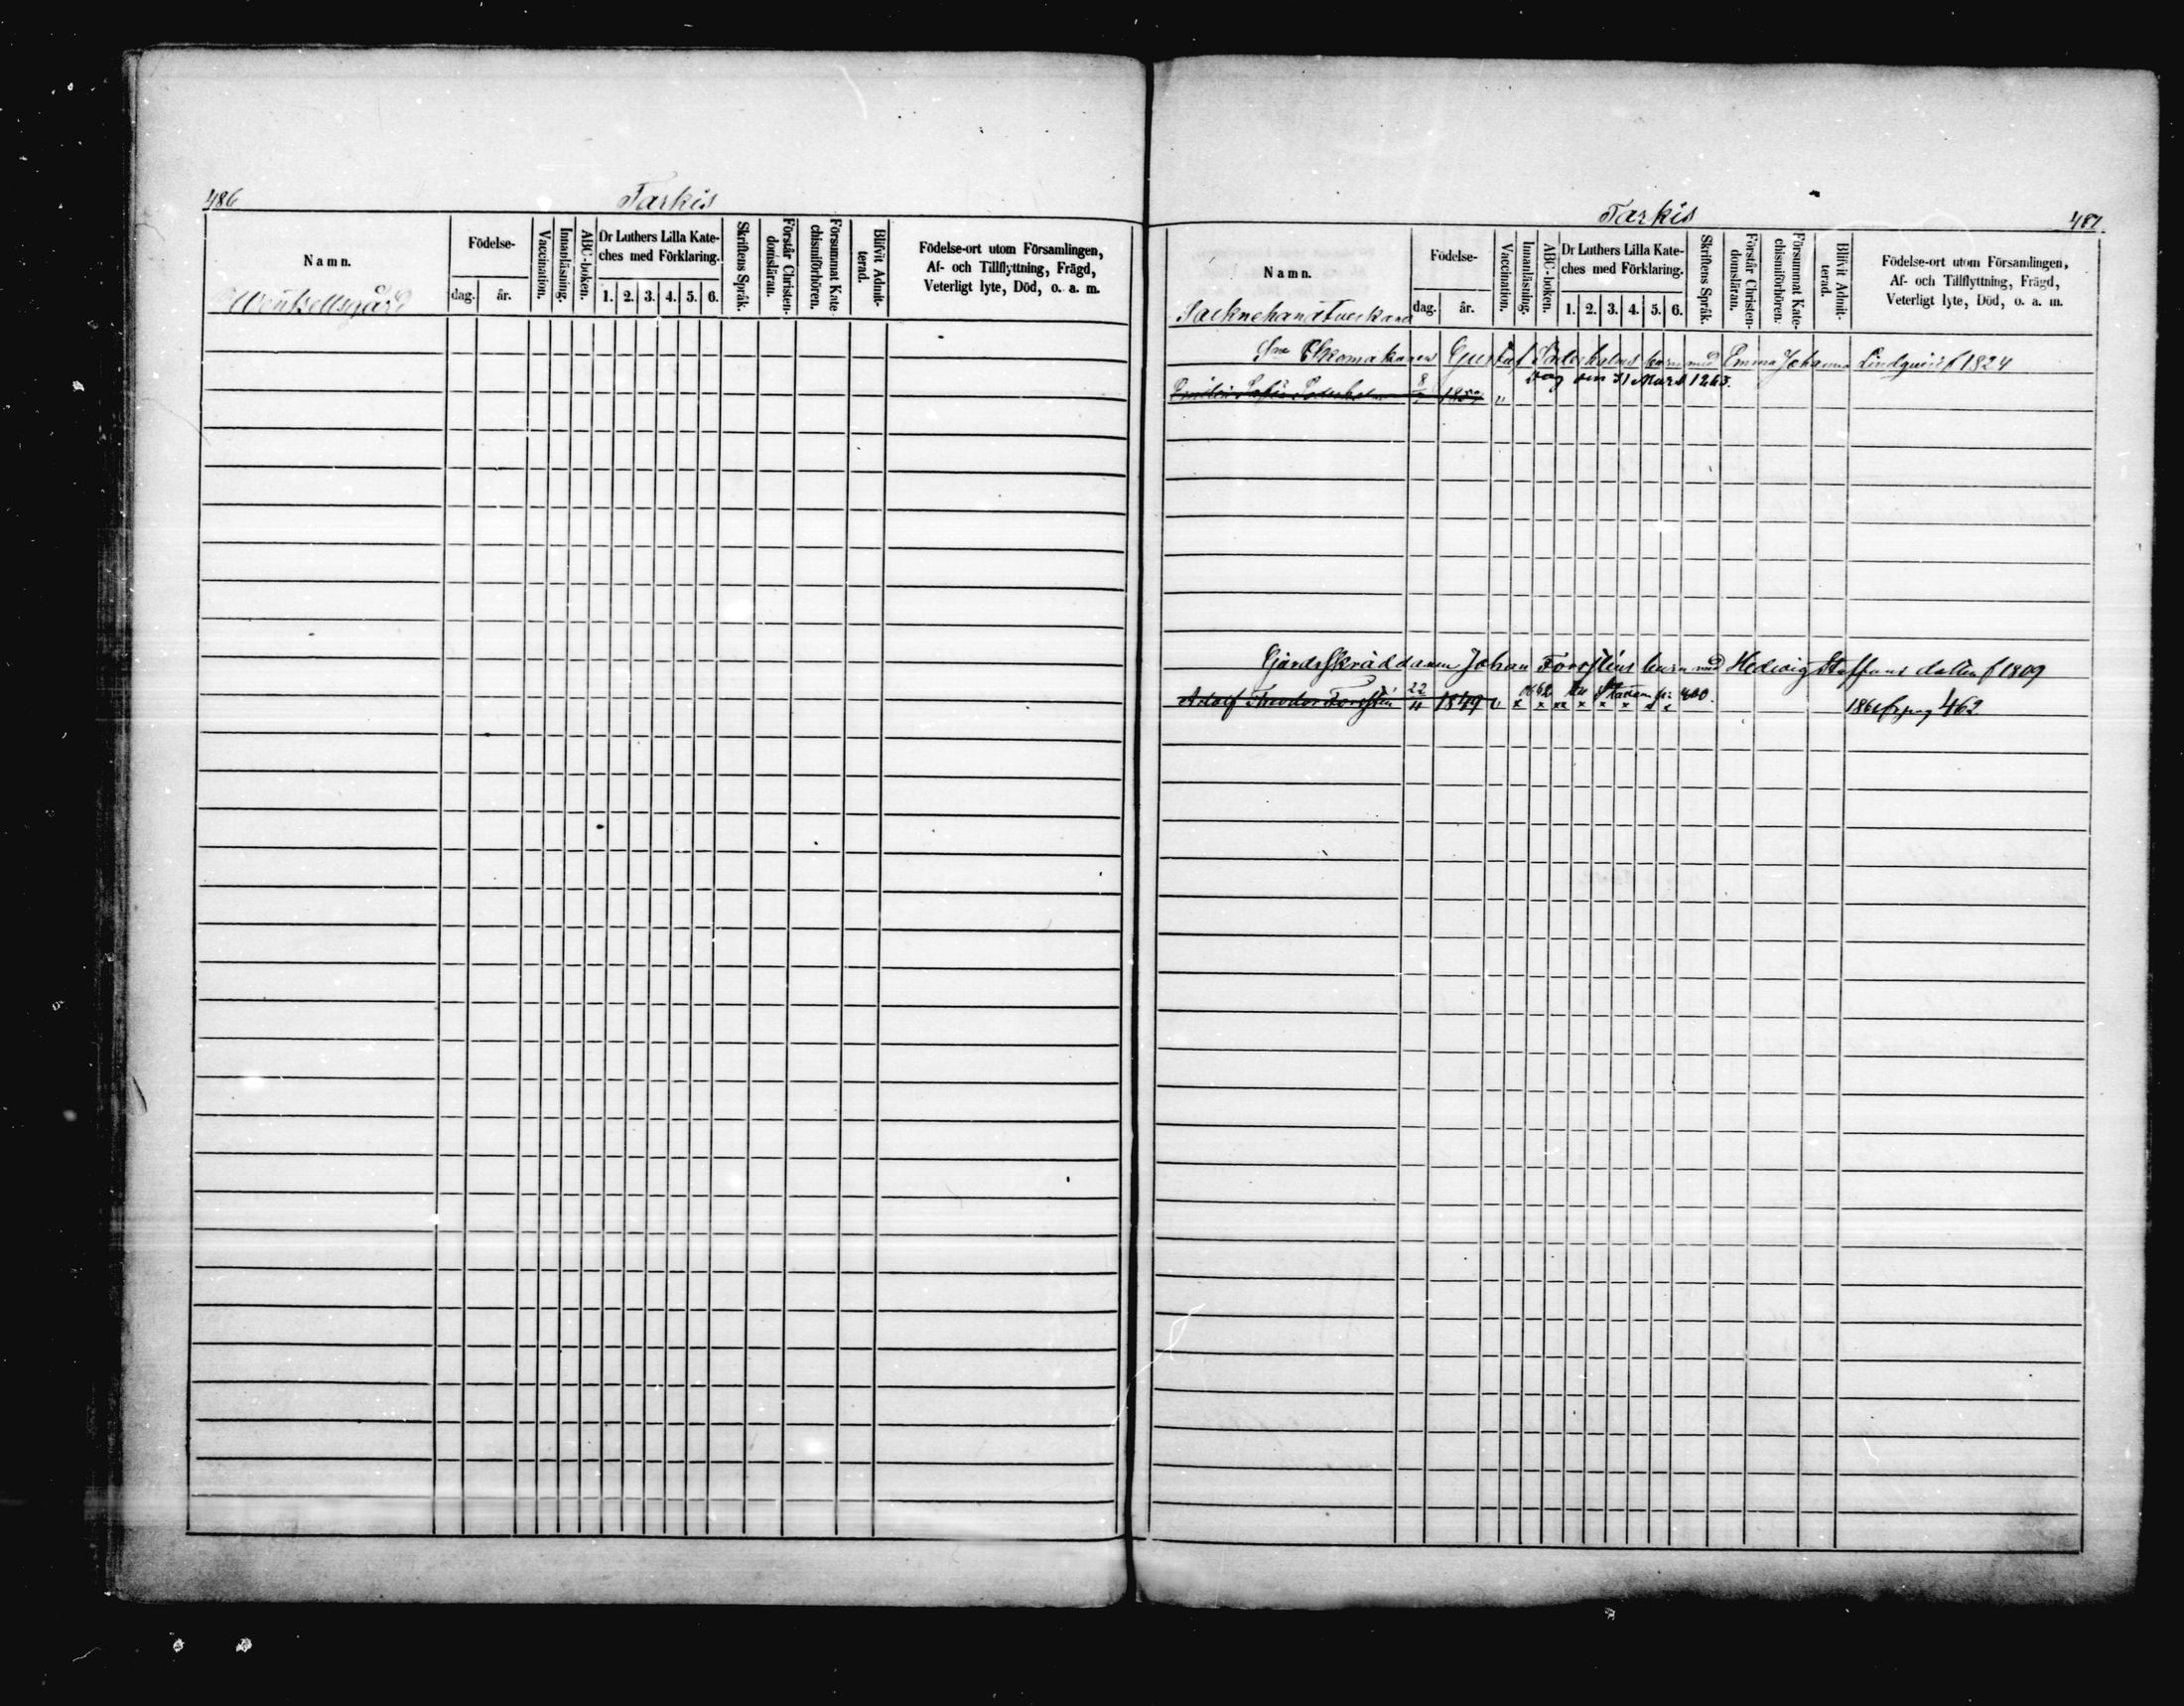 486
Tarkis
Namn.
Födelse-
dag.
år.
Vaccination.
Innanläsning.
ABC-boken.
Dr Luthers Lilla Kate-
ches med Förklaring.
1. 2. 3. 4. 5. 6.
Skriftens Språk.
Förstår Christen-
domsläran.
Försummat Kate-
chismiförhören.
Blifvit Admit-
terad.
Födelse-ort utom Församlingen,
Af- och Tillflyttning, Frägd,
Veterligt lyte, Död, o. a. m.
Tarkis
487.
Namn.
Födelse-
dag.
år.
Vaccination.
Innanläsning.
ABC-boken.
Dr Luthers Lilla Kate-
ches med Förklaring.
1. 2. 3. 4. 5. 6.
Skriftens Språk.
Förstår Christen-
domsläran.
Försummat Kate-
chismiförhören.
Blifvit Admit-
terad.
Födelse-ort utom Församlingen,
Af- och Tillflyttning, Frägd,
Veterligt lyte, Död, o. a. m.
Socknehandtverkare
Skomakaren Gustaf Söderholms barn med Emma Johanna Lindqvist f 1824
den 31 Mars 1863.
Söderholm 8 185
Johan Forsténs barn med Hedvig Staffans dotter f 1809
Adolf Theodor Forstén 22/11 1849 v x x xx x x x x x 400. pag 462